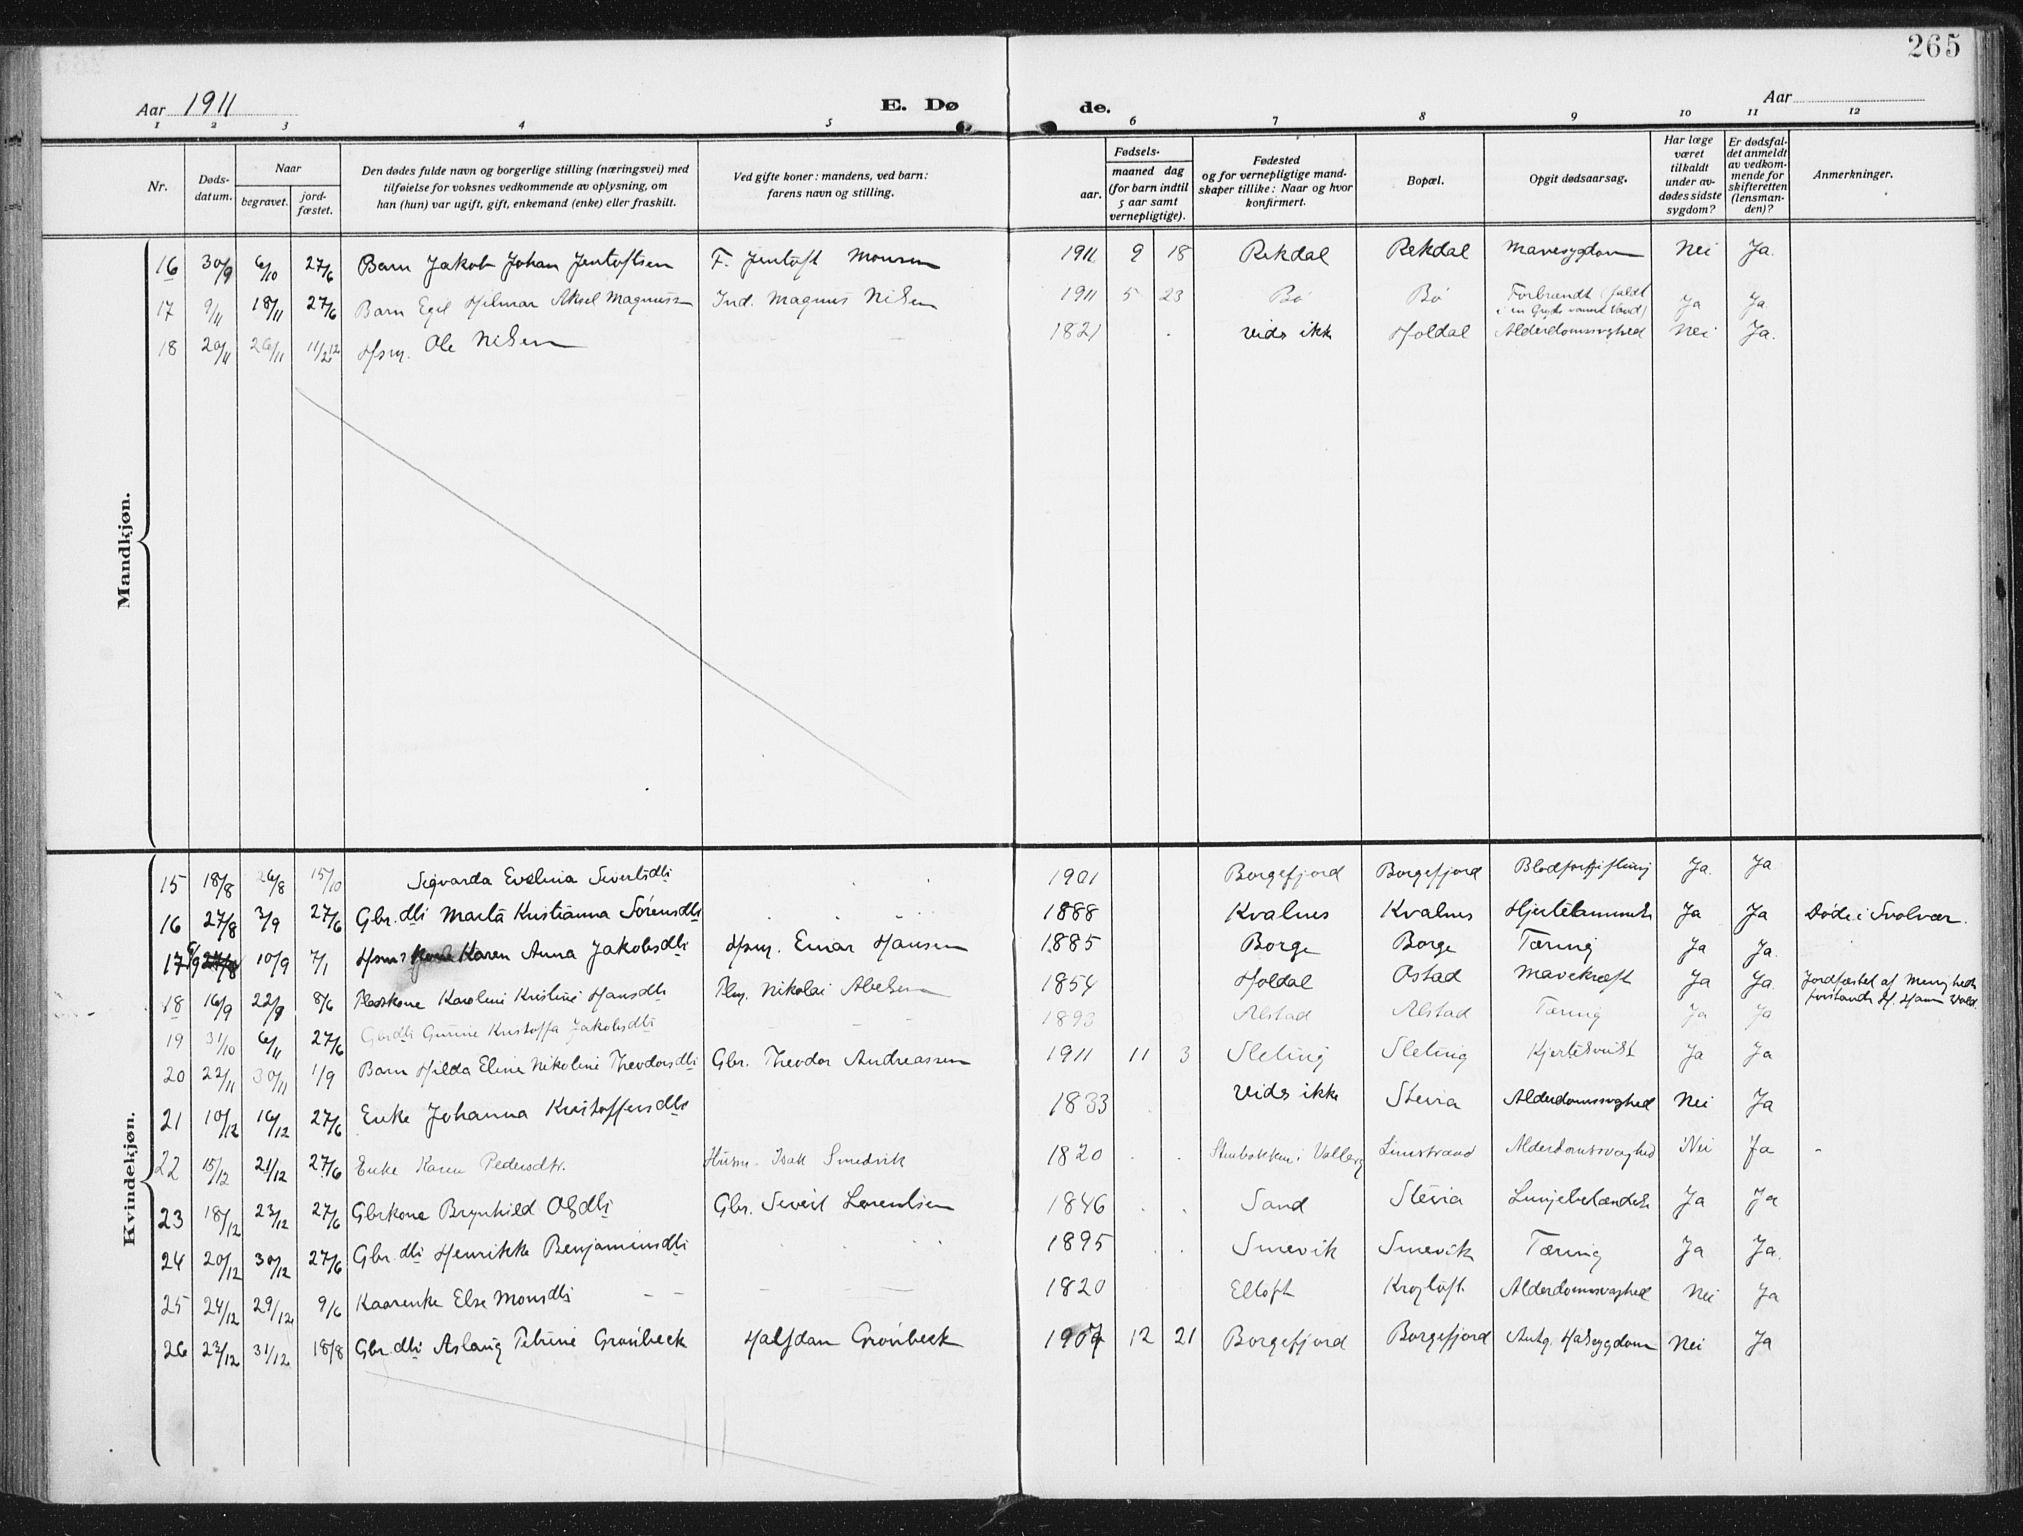 265
Aar 1911
E. Døde.
Aar
1 2 3 4 5 6 7 8 9 10 11 12
Nr.
Døds-
datum.
Naar
begravet.
jord-
fæstet.
Den dødes fulde navn og borgerlige stilling (næringsvei) med
tilføielse for voksnes vedkommende av oplysning, om
han (hun) var ugift, gift, enkemand (enke) eller fraskilt.
Ved gifte koner: mandens, ved barn:
farens navn og stilling.
Fødsels-
aar.
maaned dag
(for barn indtil
5 aar samt
vernepligtige).
Fødested
og for vernepligtige mand-
skaper tillike: Naar og hvor
konfirmert.
Bopæl.
Opgit dødsaarsag.
Har læge
været
tilkaldt
under av-
dødes sidste
sygdom?
Er dødsfal-
det anmeldt
av vedkom-
mende for
skifteretten
(lensman-
den)?
Anmerkninger.
Mandkjøn.
16 30/9 6/10 27/6 Barn Jakob Johan Jentoftsen F. Jentoft Monsen 1911 9 18 Rekdal Rekdal Mavesygdom Nei Ja.
17 9/11 18/11 27/6 Barn Egil Hilmar Aksel Magnussn Ind. Magnus Nilsen 1911 5 23 Bø Bø Forbrændt (faldt
i en Gryde varmt Vand) Ja Ja
18 20/11 26/11 Hsm. Ole Nilsen 1821 vides ikke Holdal Alderdomssvaghed Nei Ja.
Kvindekjøn.
15 18/8 26/8 15/10 Sigvarda Evelina Sivertsdtr 1901 Borgefjord Borgefjord Blodforgiftning Ja. Ja
16 27/8 2/9 27/6 Gbr.dtr Marta Kristianna Sörensdtr 1888 Kvalnes Kvalnes Hjertelammelse Ja Ja Døde i Svolvær.
17 6/9 10/9 7/1 Hsms Kone Karen Anna Jakobsdtr Hsm. Einar Hansen 1885 Borge Borge Tæring Ja Ja.
18 16/9 22/9 8/6 Pladskone Karoline Kristine Hansdtr Plm. Nikolai Abelsen 1854 Holdal Ostad Mavekræft Ja Ja. Jordfæstet af Menigheds
forstander H. Hansen Vold.
19 31/10 6/11 27/6 Gbrdtr Gunine Kristoffa Jakobsdtr 1893 Alstad Alstad Tæring Ja Ja
20 22/11 30/11 1/9 Barn Hilda Eline Nikoline Theodorsdtr Gbr. Theodor Andreassen 1911 11 3 Sleting Sleting Hjertesvikt Ja Ja
21 10/12 16/12 27/6 Enke Johanna Kristoffersdtr 1833 Vides ikke Steira Alderdomssvaghed Nei Ja
22 15/12 21/12 27/6 Enke Karen Pedersdtr. Husm. Isak Smedvik 1820 Stenbakken i Valberg Limstrand Alderdomssvaghed Nei Ja
23 18/12 23/12 27/6 Gbrkone Brynhild Olsdtr Gbr. Severt Lorentsen 1846 Sand Steira Lungebetændelse Ja Ja
24 20/12 30/12 27/6 Gbr.dtr Henrikke Benjaminsdtr 1895 Smevik Smevik Tæring Ja Ja.
25 24/12 29/12 9/6 Kaarenke Else Monsdtr 1820 Eltoft Krogtoft Alderdomssvaghed Nei Ja
26 23/12 31/12 18/8 Gbr.dtr Aslaug Petrine Grønbeck Halfdan Grønbeck 1907 12 21 Borgefjord Borgefjord Antg. Halssygdom Nei Ja